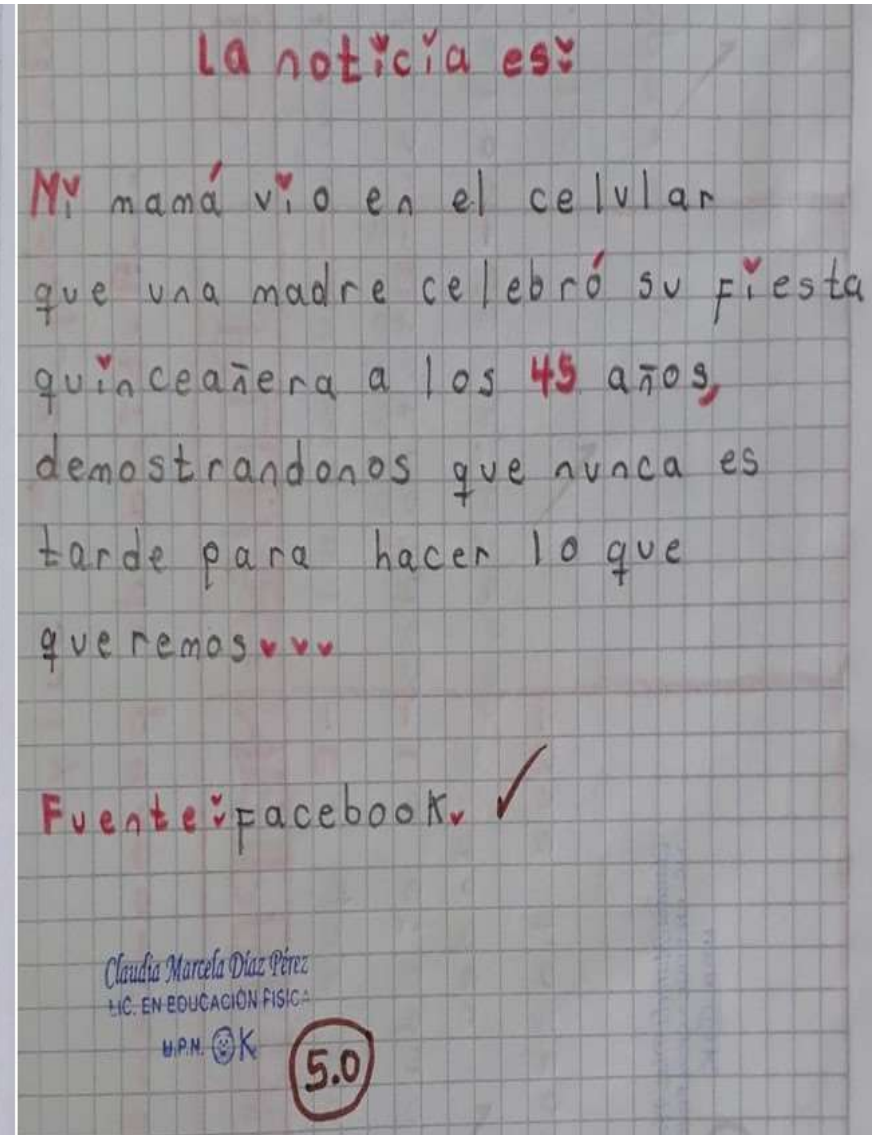 La noticia es:
Mi mamá vio en el celular
que una madre celebró su Fiesta
quinceañera a los 45 años,
demostrandonos que nunca es
tarde para hacer lo que
queremos...
Fuente: Facebook.
Claudia Marcela Díaz Pérez
LIC. EN EDUCACIÓN FISICA
U.P.N. OK
5.0